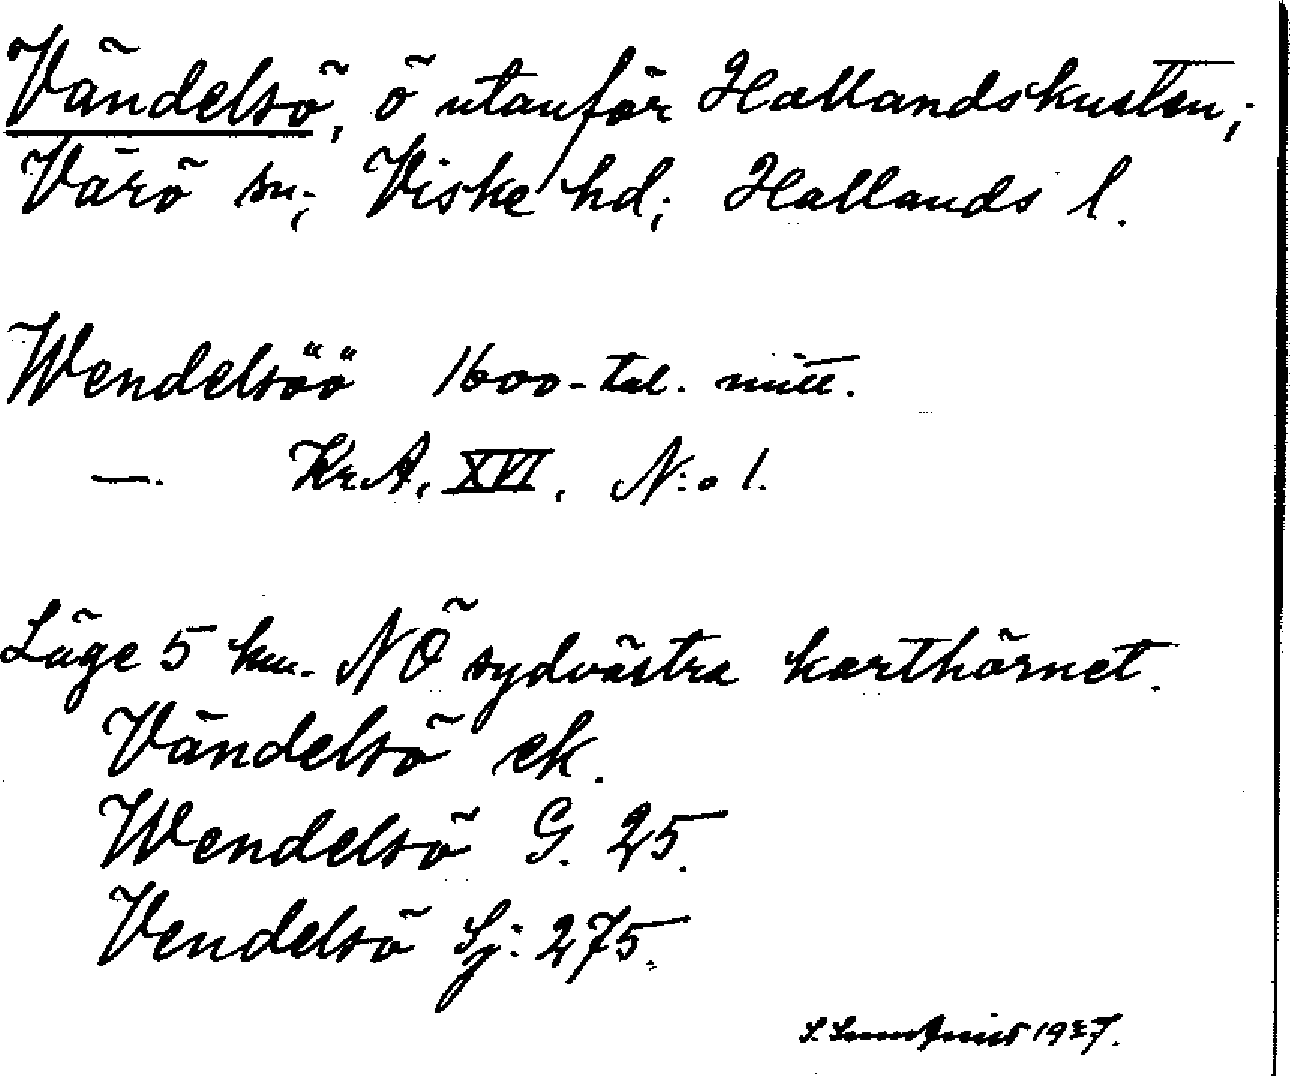 Vändelsö, ö utanför Hallandskusten;
Värö sn; Viske hd; Hallands l.
Wendelsöö 1600-tal. mitt.
—. Kr.A. XVI. N:o 1.
Läge 5 km. NÖ sydvästra karthörnet.
Vändelsö ek.
Wendelsö G. 25.
Vendelsö Sj: 275.
S. 19